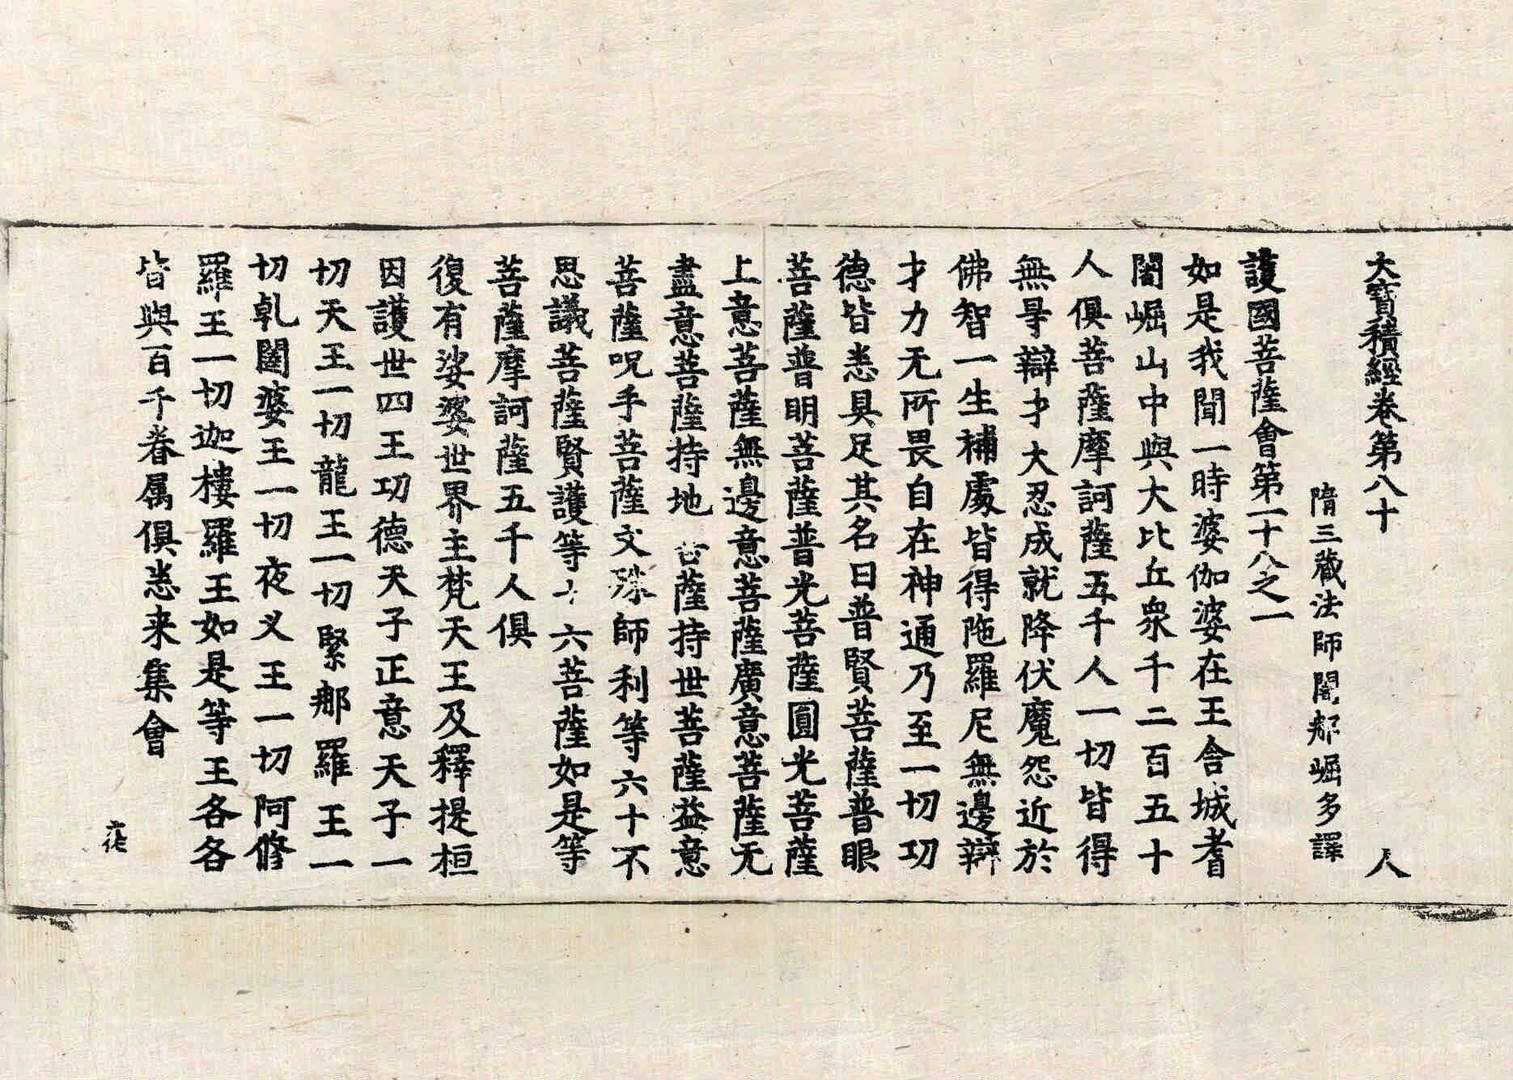 大寶積經卷第八十 人
隋三藏法師闍那崛多譯
護國菩薩會第十八之一
如是我聞一時婆伽婆在王舍城耆
闍崛山中與大比丘衆千二百五十
人俱菩薩摩訶薩五千人一切皆得
無㝵辯才大忍成就降伏魔怨近於
佛智一生補處皆得陁羅尼無邊辯
才力无所畏自在神通乃至一切功
德皆悉具足其名曰普賢菩薩普眼
菩薩普明菩薩普光菩薩圓光菩薩
上意菩薩無邊意菩薩廣意菩薩无
盡意菩薩持地菩薩持世菩薩益意
菩薩呪手菩薩文殊師利等六十不
思議菩薩賢護等十六菩薩如是等
菩薩摩訶薩五千人俱
復有娑婆世界主梵天王及釋提桓
因護世四王功德天子正意天子一
切天王一切龍王一切緊那羅王一
切乹闥婆王一切夜叉王一切阿脩
羅王一切迦樓羅王如是等王各各
皆與百千眷属俱悉来集會